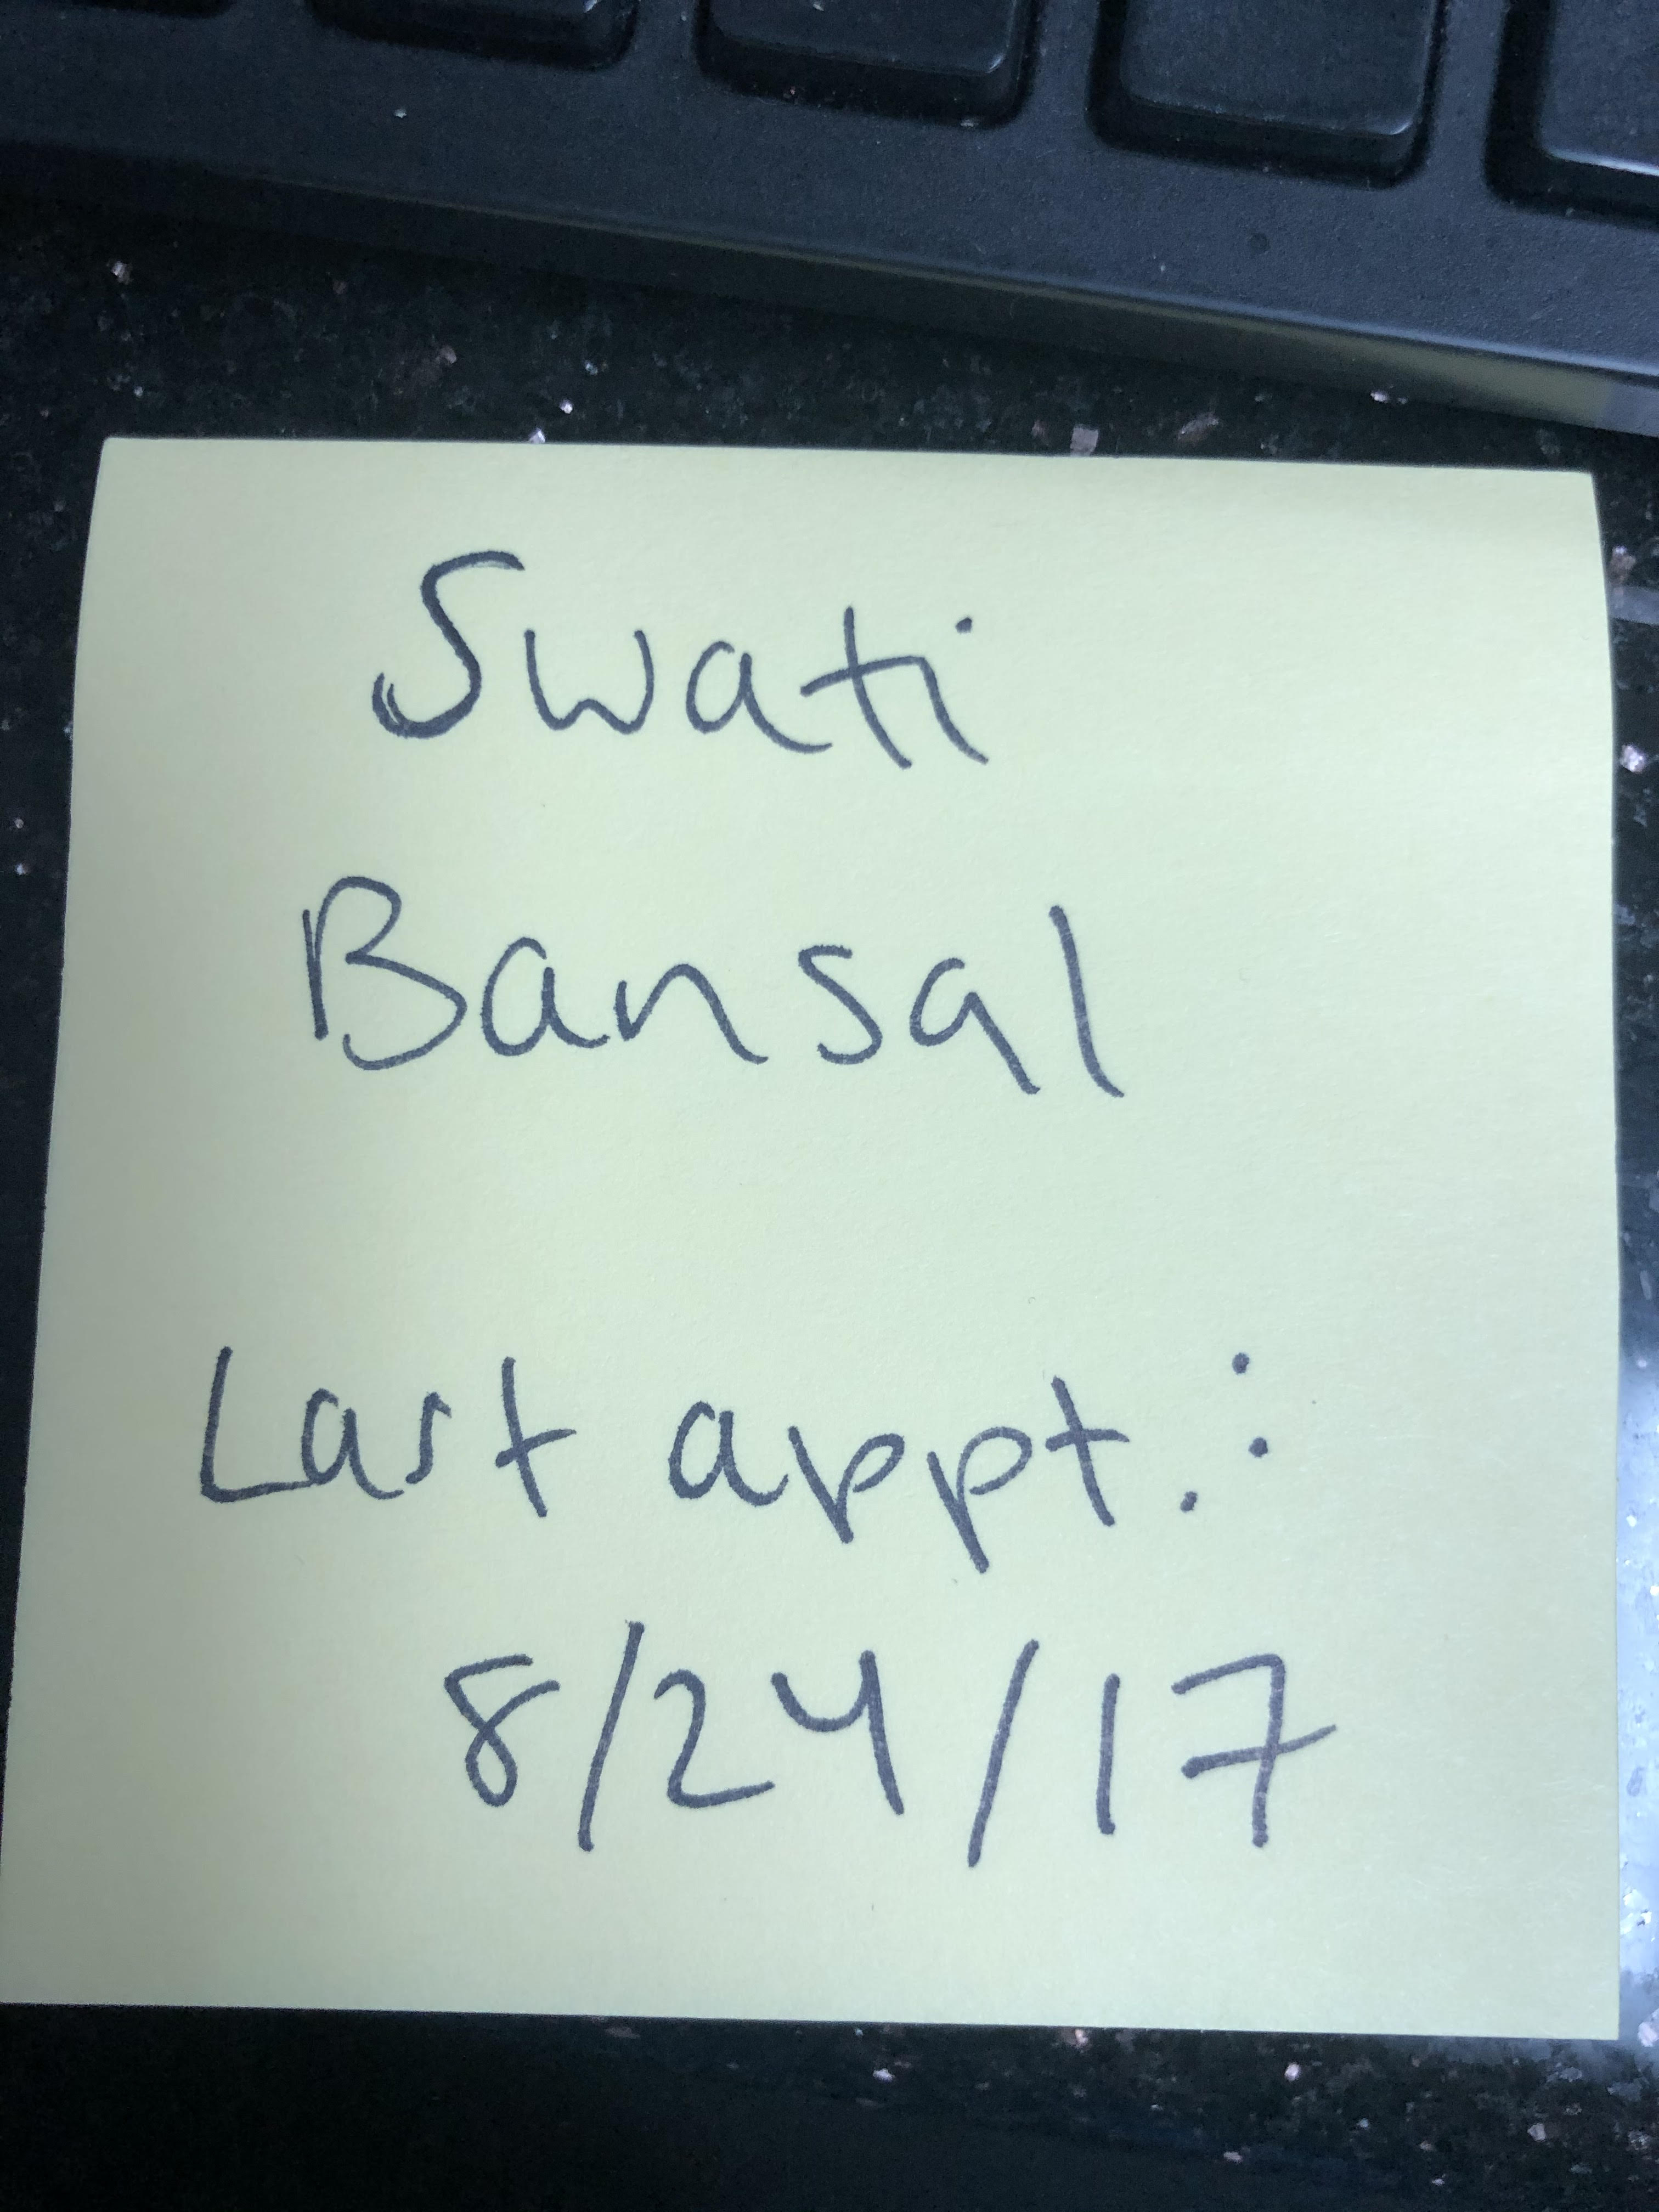 Swati
Bansal
Last appt.:
8/24/17